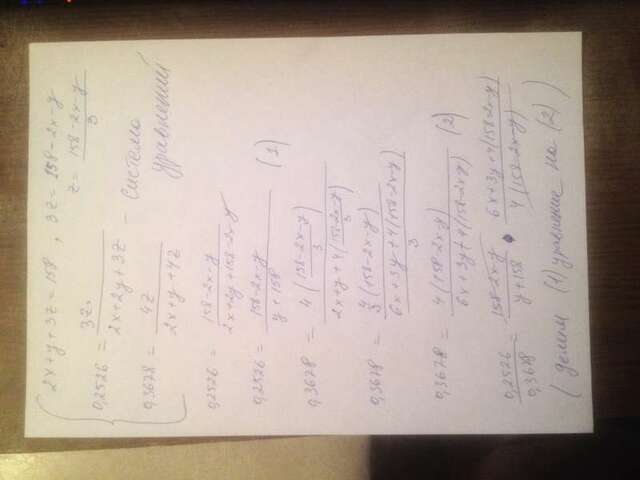 2x + y + 3z = 158, 3z = 158 - 2x - y
z = (158 - 2x - y)/3
{ 0,2526 = 3z/(2x + 2y + 3z) - система
0,3678 = 4z/(2x + y + 4z) уравнений
0,2526 = (158 - 2x - y)/(2x + 2y + 158 - 2x - y)
0,2526 = (158 - 2x - y)/(y + 158) (1)
0,3678 = 4((158 - 2x - y)/3)/(2x + y + 4(158 - 2x - y)/3)
0,3678 = (4/3(158 - 2x - y))/((6x + 3y + 4(158 - 2x - y))/3)
0,3678 = 4(158 - 2x - y)/(6x + 3y + 4(158 - 2x - y)) (2)
0,2526/0,3678 = (158 - 2x - y)/(y + 158) · (6x + 3y + 4(158 - 2x - y))/(4(158 - 2x - y))
(делим (1) уравнение на (2))